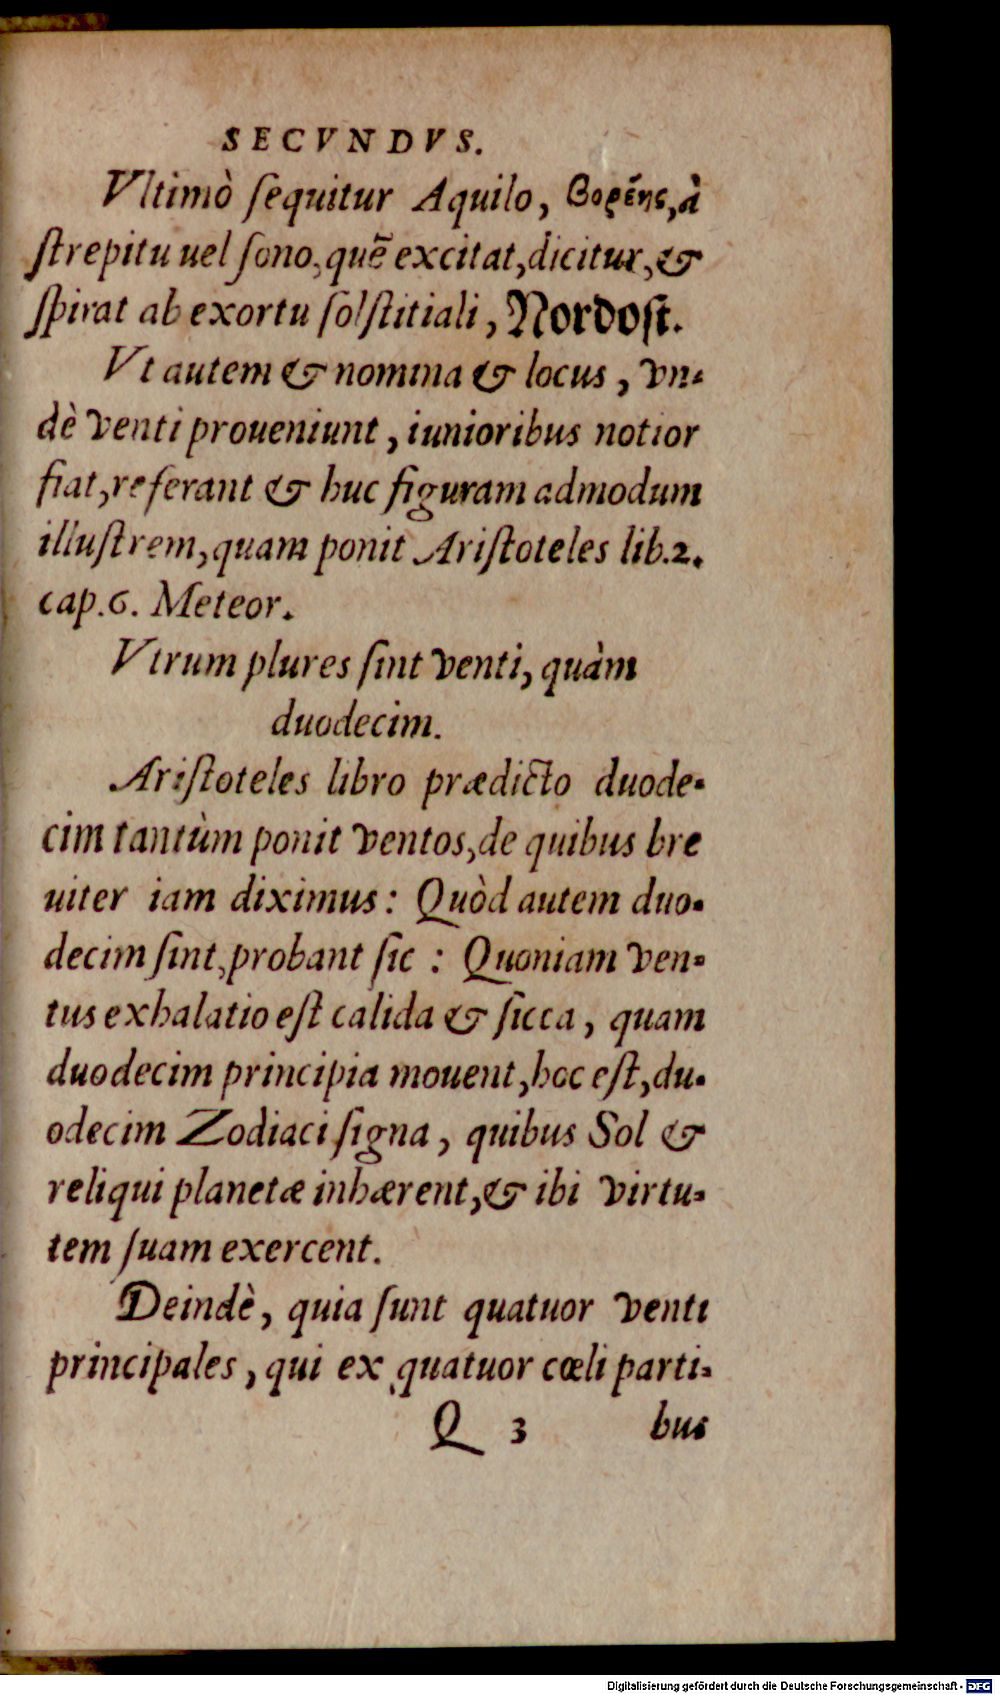 SECVNDVS.
Vltimò ſequitur Aquilo, βορέης, à
ſtrepitu uel ſono, quẽ excitat, dicitur, &
ſpirat ab exortu ſolſtitiali, Nordoſt.
Vt autem & nomina & locus, vn-
dè venti proueniunt, iunioribus notior
fiat, referant & huc figuram admodum
illuſtrem, quam ponit Ariſtoteles lib.2.
cap.6. Meteor.
Vtrum plures ſint venti, quàm
duodecim.
Ariſtoteles libro prædicto duode-
cim tantùm ponit ventos, de quibus bre
uiter iam diximus: Quòd autem duo-
decim ſint, probant ſic: Quoniam ven-
tus exhalatio eſt calida & ſicca, quam
duodecim principia mouent, hoc eſt, du-
odecim Zodiaci ſigna, quibus Sol &
reliqui planetæ inhærent, & ibi virtu-
tem ſuam exercent.
Deindè, quia ſunt quatuor venti
principales, qui ex quatuor cœli parti-
Q 3 bus
Digitalisierung gefördert durch die Deutsche Forschungsgemeinschaft - DFG